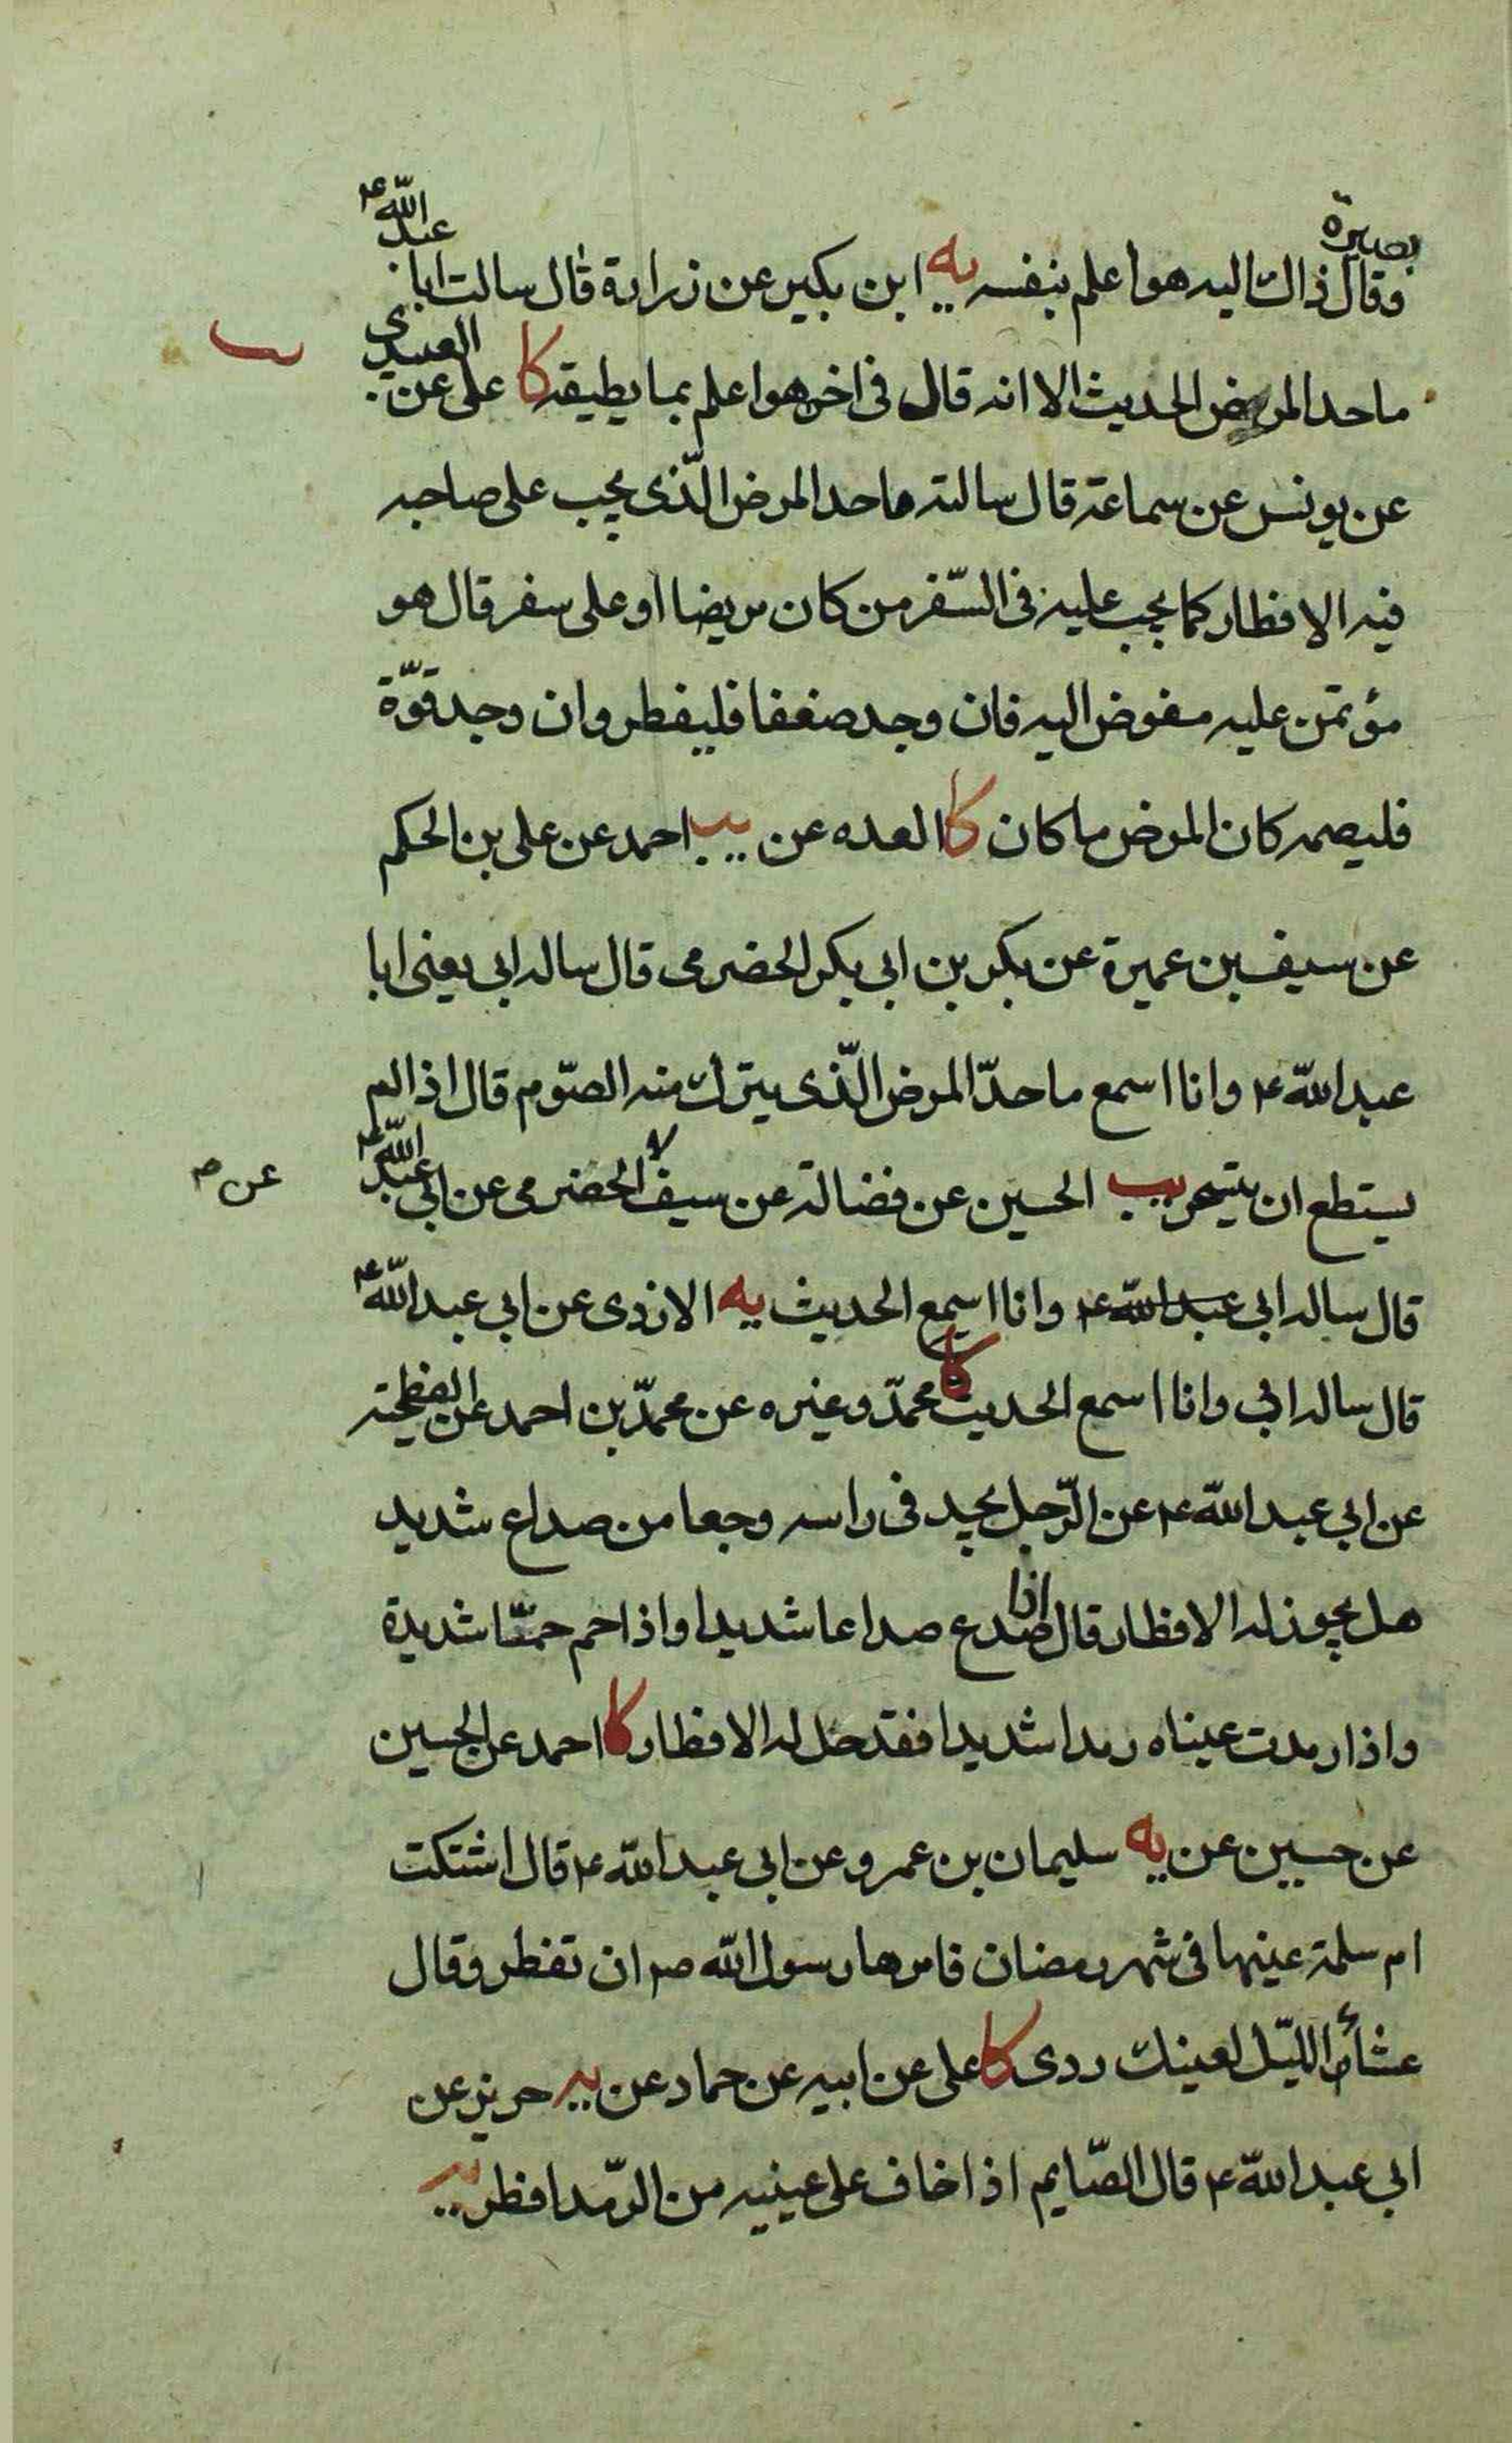 بصيرة
وقال ذاك اليه هو اعلم بنفسه يه ابن بكير عن زرارة قال سالت ابا عبد الله ع
ما حد المرض الحديث الا انه قال فى اخره هو اعلم بما يطيقه كا على عن العبيدى
عن يونس عن سماعة قال سالته ما حد المرض الّذى يجب على صاحبه
فيه الافطار كما يجب عليه فى السّفر من كان مريضا او على سفر قال هو
مؤتمن عليه مفوض اليه فان وجد ضعفا فليفطر وان وجد قوّة
فليصمه كان المرض ما كان كا العده عن يب احمد عن على بن الحكم
عن سيف بن عميرة عن بكر بن ابى بكر الحضرمى قال ساله ابى يعنى ابا
عبد الله ع وانا اسمع ما حدّ المرض الّذى يترك منه الصّوم قال اذا لم
يستطع ان يتسحر يب الحسين عن فضالة عن سيف الحضرمى عن ابى عبد الله ع
عن ص
قال ساله ابى عبد الله ع وانا اسمع الحديث يه الازدى عن ابى عبد الله ع
قال ساله ابى وانا اسمع الحديث كا محمّد وغيره عن محمّد بن احمد عن الفطحية
عن ابى عبد الله ع عن الرّجل يجد فى راسه وجعا من صداع شديد
هل يجوز له الافطار قال اذا صدع صداعا شديدا واذا حم حمّا شديدة
واذا رمدت عيناه رمدا شديدا فقد حل له الافطار كا احمد عن الحسين
عن حسين عن يه سليمان بن عمرو عن ابى عبد الله ع قال اشتكت
ام سلمة عينها فى شهر رمضان فامرها رسول الله ص ان تفطر وقال
عشاء الليّل لعينك ردى كا على عن ابيه عن حماد عن يه حريز عن
ابى عبد الله ع قال الصّايم اذا خاف على عينيه من الرّمد افطر يه